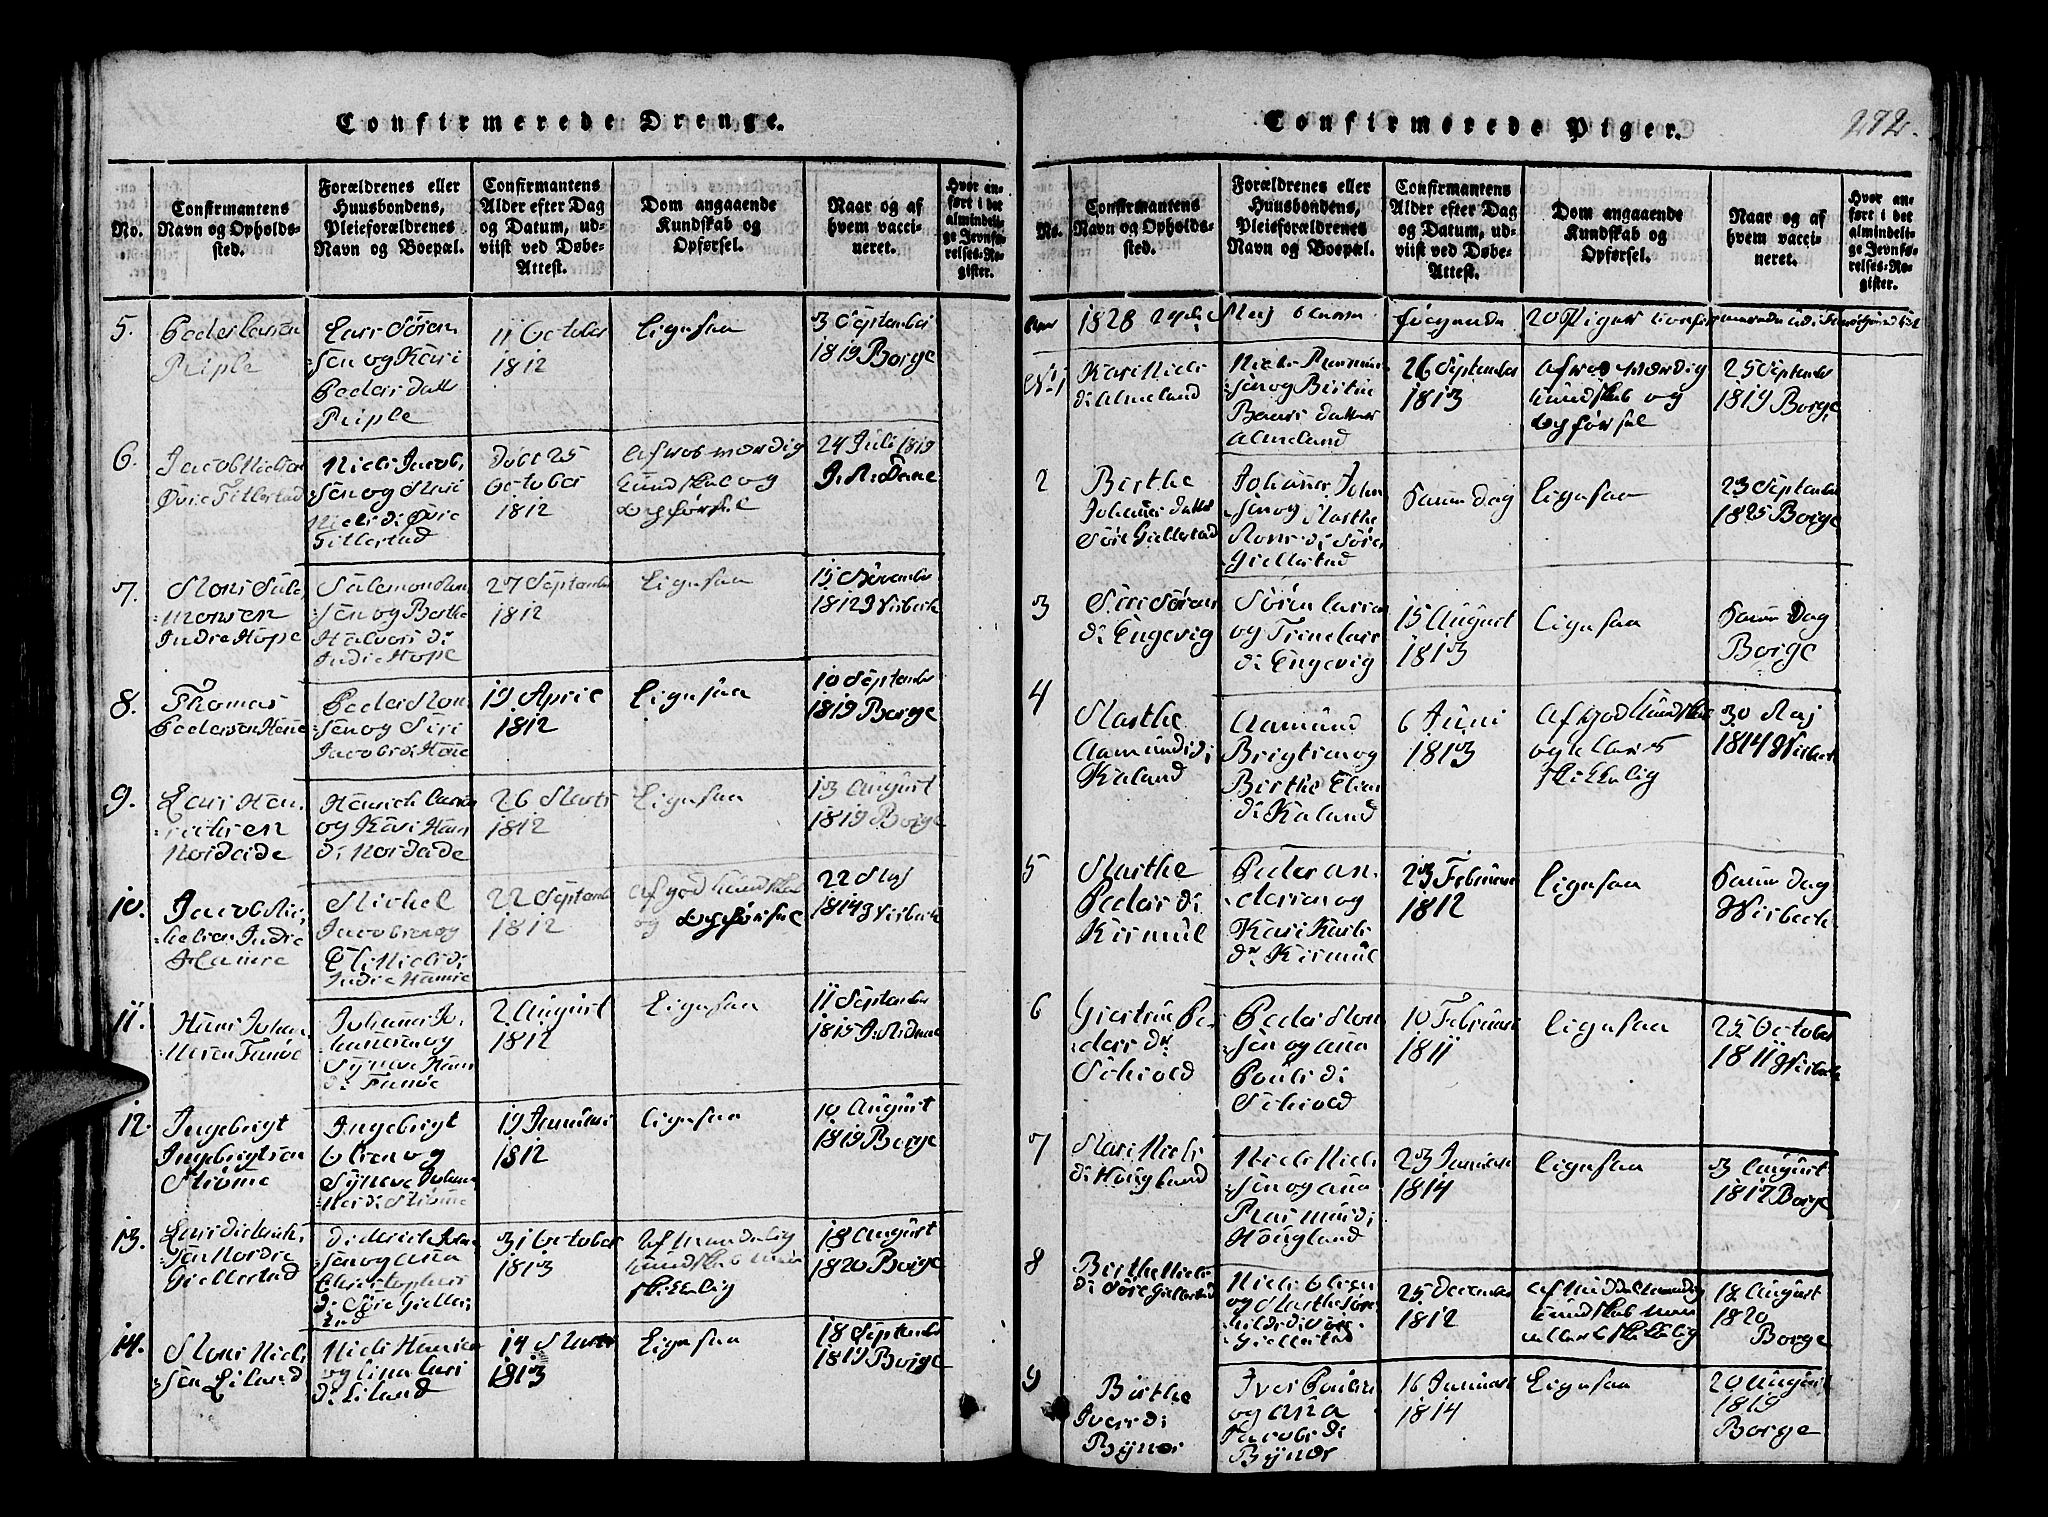 Confirmerede Drenge.
No.
Confirmantens
Navn og Opholds-
sted.
Forældrenes eller
Huusbondens,
Pleieforældrenes
Navn og Boepæl.
Confirmantens
Alder efter Dag
og Datum, ud-
viist ved Døbe-
Attest.
Dom angaaende
Kundskab og
Opførsel.
Naar og af
hvem vacci-
neret.
Hvor an-
ført i det
almindeli-
ge Jevnfø-
relses-Re-
gister.
5.
Peder Larsen
Riple
Lars Søren
sen og Kari
Peders Datt
Riple
11 October
1812
Ligesaa
3 September
1819 Borge
6.
Jacob Nielsen
Øvre Tillerstad
Niels Jacob
sen og Mari
Niels d: Øvre
Tillerstad
Døbt 25
October
1812
af roesværdig
Kundskab og
Opførsel
24 Juli 1819
7.
Mons Sale
monsen
Indre Hope
Salemon Mon
sen og Berthe
Halvors d:
Indre Hope
27 September
1812
Ligesaa
15 November
1812 Wisbech
8.
Thomas
Pedersen Hane
Peder Mon
sen og Siri
Jacobs d: Hane
19 April
1812
Ligesaa
10 September
1819 Borge
9.
Lars Hen
richsen
Nordeide
Henrich Larsen
og Kari Hans
d: Nordeide
26 Marts
1812
Ligesaa
13 August
1819 Borge
10.
Jacob Mi
chelsen Indre
Hamre
Michel
Jacobsen og
Eli Niels d:
Indre Hamre
22 September
1812
af god Kundskab
og Opførsel
22 Maj
1814 Wisbech
11.
Hans Johan
nesen Fanøe
Johannes Jo
hannesen og
Synneve Hans
d: Fanøe
2 August
1812
Ligesaa
11 September
1815
12.
Ingebrigt
Ingebrigtsen
Strøme
Ingebrigt
Olsen og
Synneve Johan
nes d: Strøme
19 Januari
1812
Ligesaa
10 August
1819 Borge
13.
Lars Diderich
sen Nordre
Giellestad
Diderich Johan
sen og Anna
Christophers
d: Søre Gielle
stad
31 October
1813
af maadelig
Kundskab men
skikkelig
18 August
1820 Borge
14.
Mons Niel
sen Eiland
Niels Hansen
og Anna Lars
d: Eiland
14 Marts
1813
Ligesaa
18 September
1819 Borge
Confirmerede Piger.
272.
No.
Confirmantens
Navn og Opholds-
sted.
Forældrenes eller
Huusbondens,
Pleieforældrenes
Navn og Boepæl.
Confirmantens
Alder efter Dag
og Datum, ud-
viist ved Døbe-
Attest.
Dom angaaende
Kundskab og
Opførsel.
Naar og af
hvem vacci-
neret.
Hvor an-
ført i det
almindeli-
ge Jevnfø-
relses-Re-
gister.
1828
følgende
20 Piger
No 1
Kari Niels
d: Almeland
Niels Rasmus
sen og Birthe
Baars Datter
Almeland
26 September
1813
af roesværdig
Kundskab og
Opførsel
25 September
1819 Borge
2
Birthe
Johannes Datter
Søre Giellestad
Johannes Johan
sen og Marthe
Mons d: Søre
Giellestad
samme Dag
Ligesaa
23 September
1825 Borge
3
Siri Sørens
d: Engevig
Søren Larsen
og Trine Lars
d: Engevig
15 August
1813
Ligesaa
samme Dag
Borge
4
Marthe
Aamunds d:
Kaland
Aamund
Brigtsen og
Birthe Elias
d: Kaland
6 Juni
1813
af god Kundskab
og ellers
skikkelig
30 Maj
1814 Wisbech
5
Marthe
Peders d:
Kismul
Peder An
dersen og
Kari Karls
dr Kismul
23 Februar
1812
Ligesaa
samme Dag
Wisbech
6
Giertrue Pe
ders dr
Schiold
Peder Mon
sen og Anna
Pouls d:
Schiold
10 Februari
1811
Ligesaa
25 October
1811 Wisbech
7
Mari Niels
d: Hougland
Niels Niel
sen og Anna
Rasmus d:
Hougland
23 Januari
1814
Ligesaa
3 August
1817 Borge
8
Birthe Niels
d: Søre Giellestad
Niels Olsen
og Marthe
Giellestad
25 December
1812
af middelmaadig
Kundskab men
ellers skikkelig
18 August
1820
Borge
9
Birthe
Ivers d:
Bynes
Iver Poulsen
og Anna
Jacobs d:
Bynes
16 Januari
1814
Ligesaa
20 August
1819
Borge